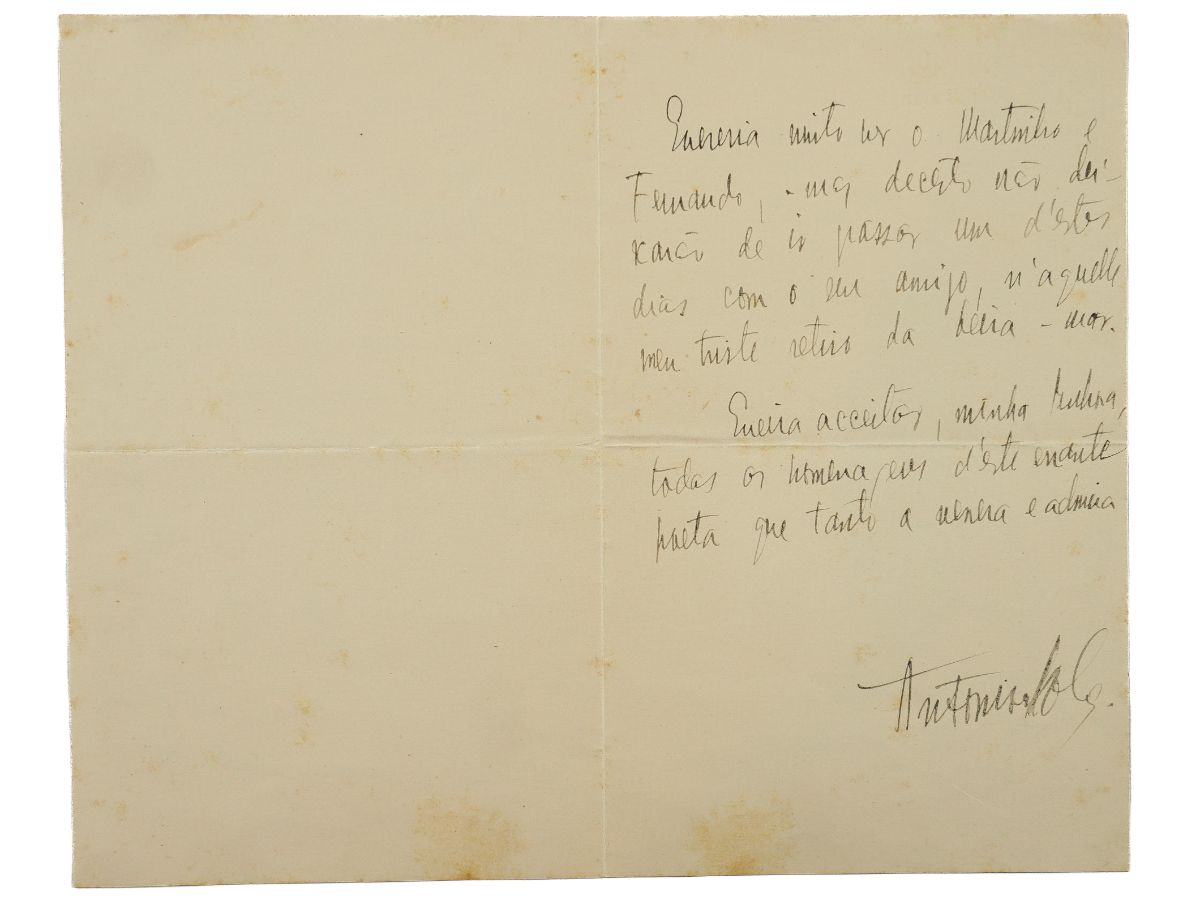 Quereria muito ver o Martinho e
Fernando, - mas decerto não dei-
xarão de ir passar um d'estes
dias com o seu amigo, n'aquelle
meu triste retiro da beira-mar.
Queira acceitar, minha Senhora,
todas as homenagens d'este errante
poeta que tanto a venera e admira
Antonio